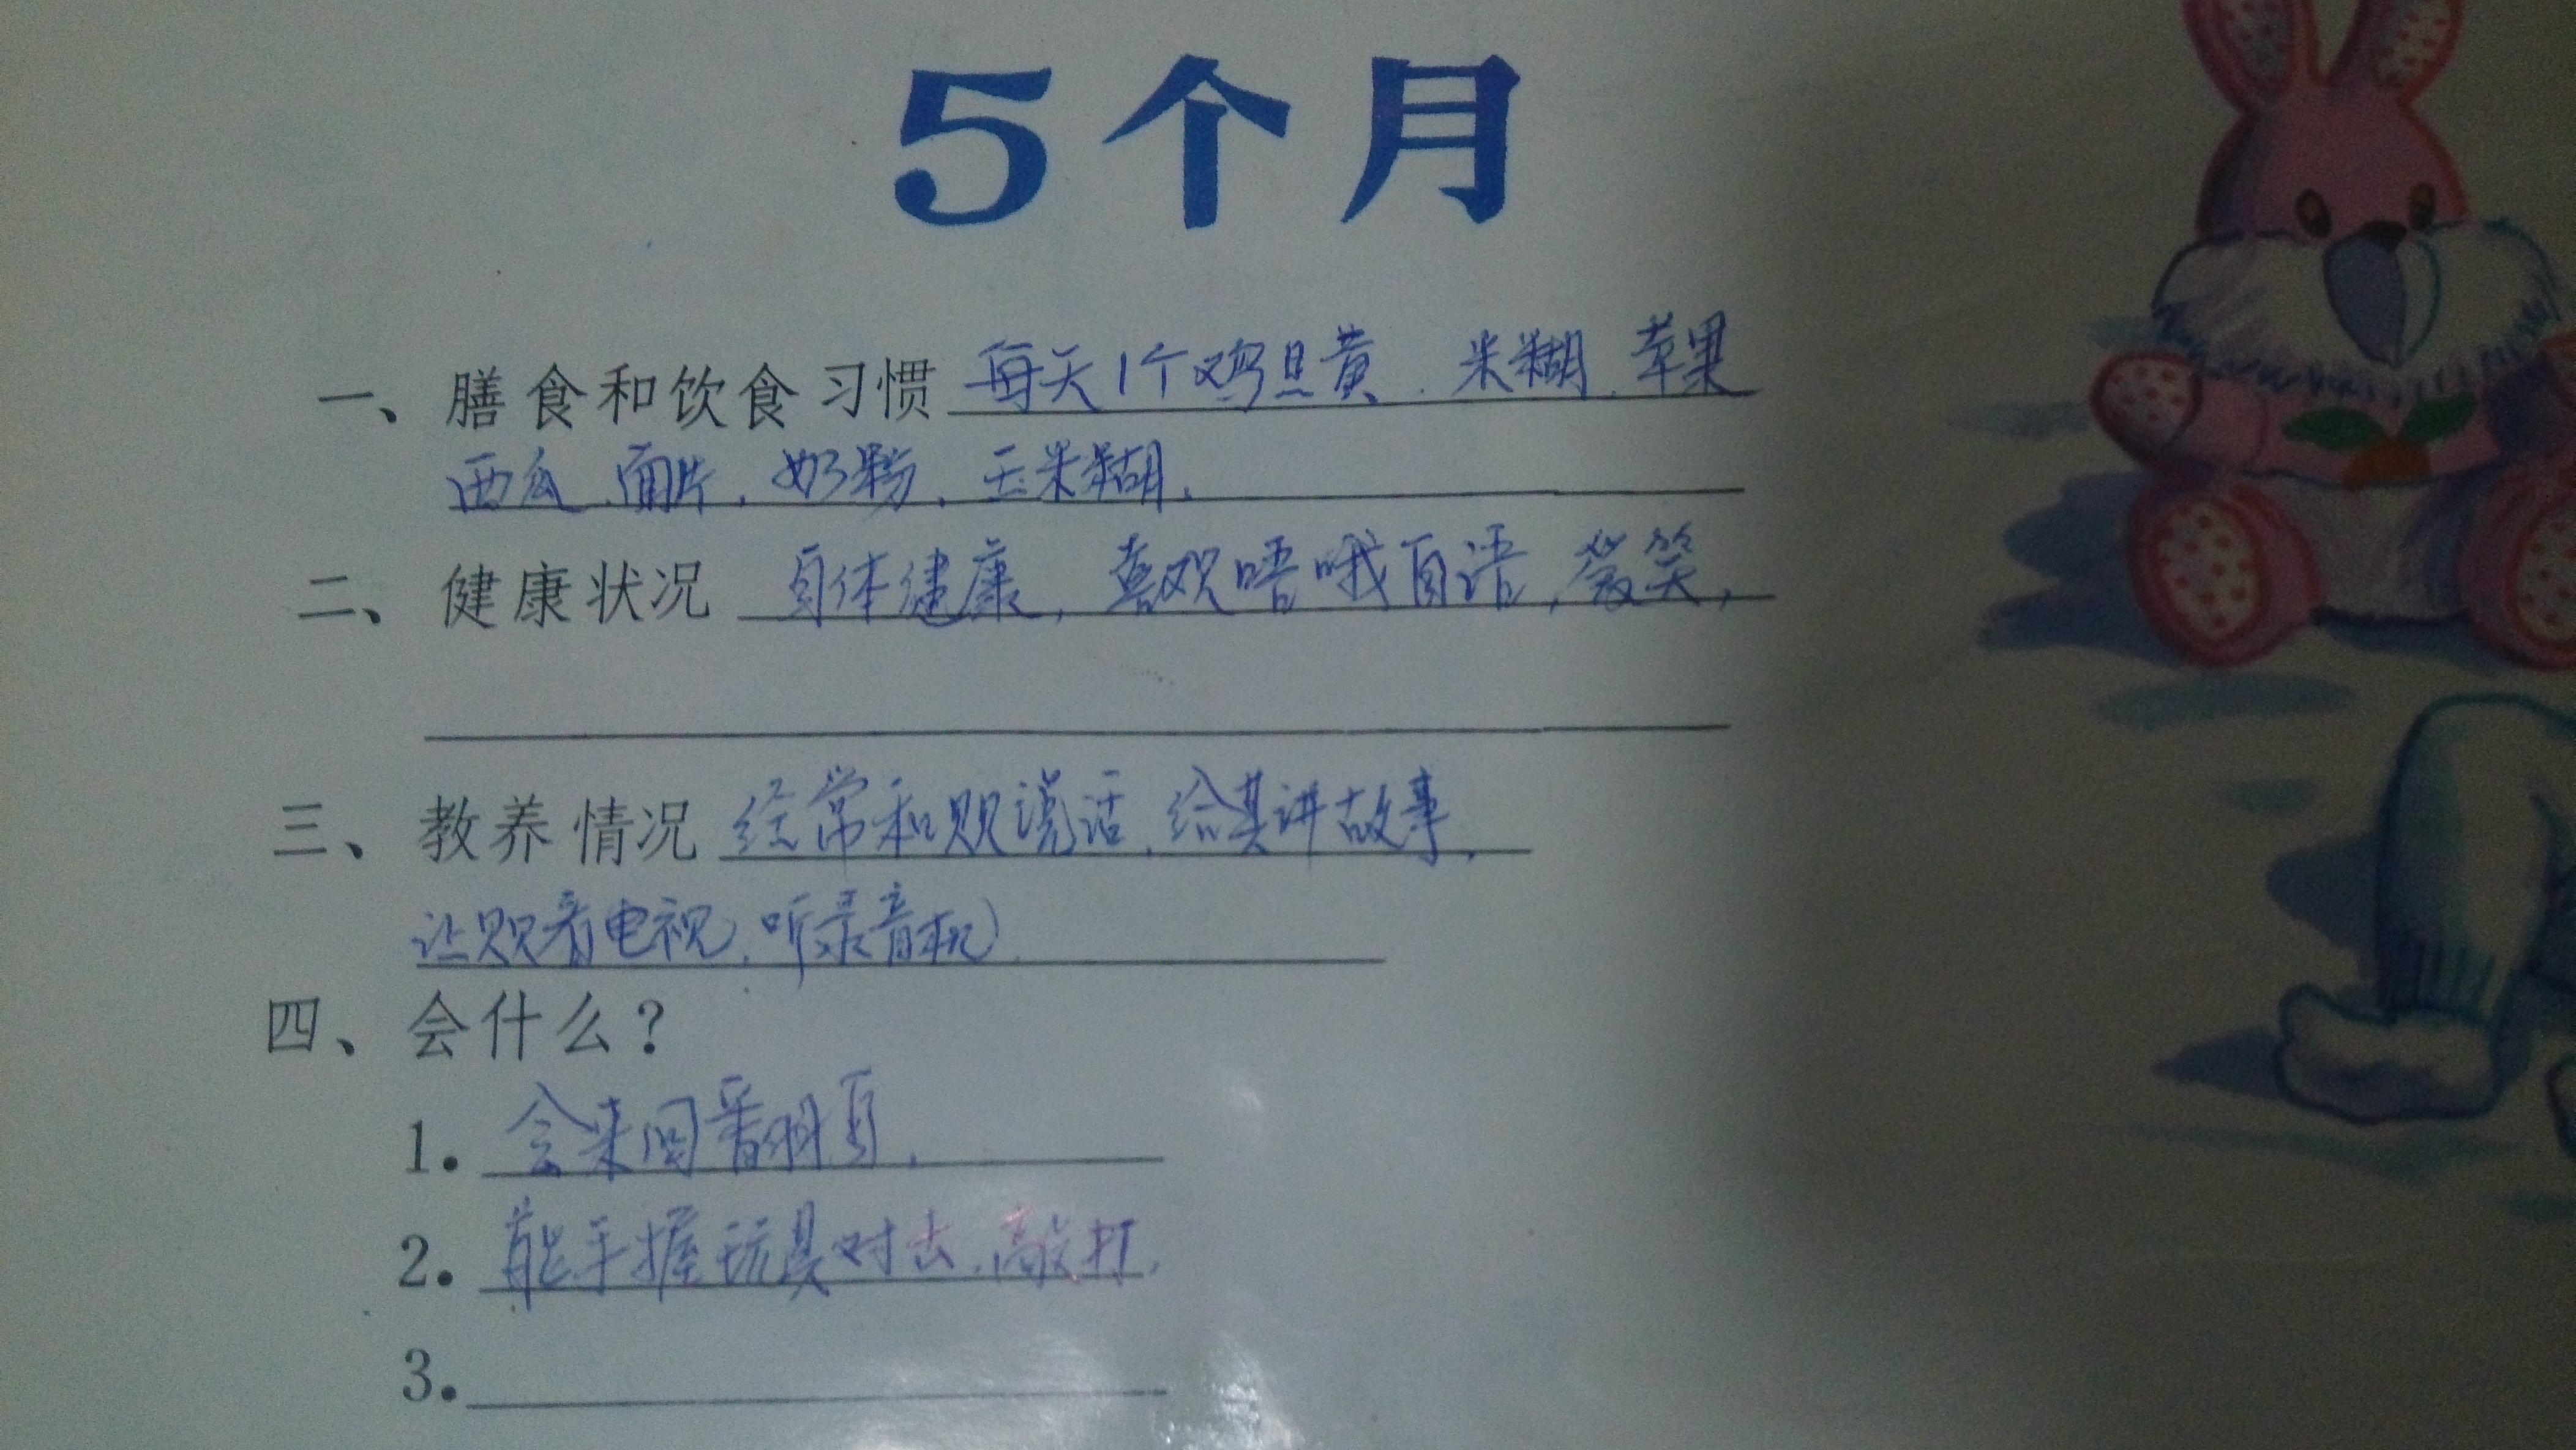 5个月
一、膳食和饮食习惯 每天1个鸡旦黄.米糊.苹果
西瓜.面片.奶粉.玉米糊.
二、健康状况 身体健康,喜欢唔哦自语,微笑,
三、教养情况 经常和贝贝说话.给其讲故事,
让贝贝看电视.听录音机.
四、会什么?
1. 会来回翻身.
2. 能手握玩具对击.敲打.
3.